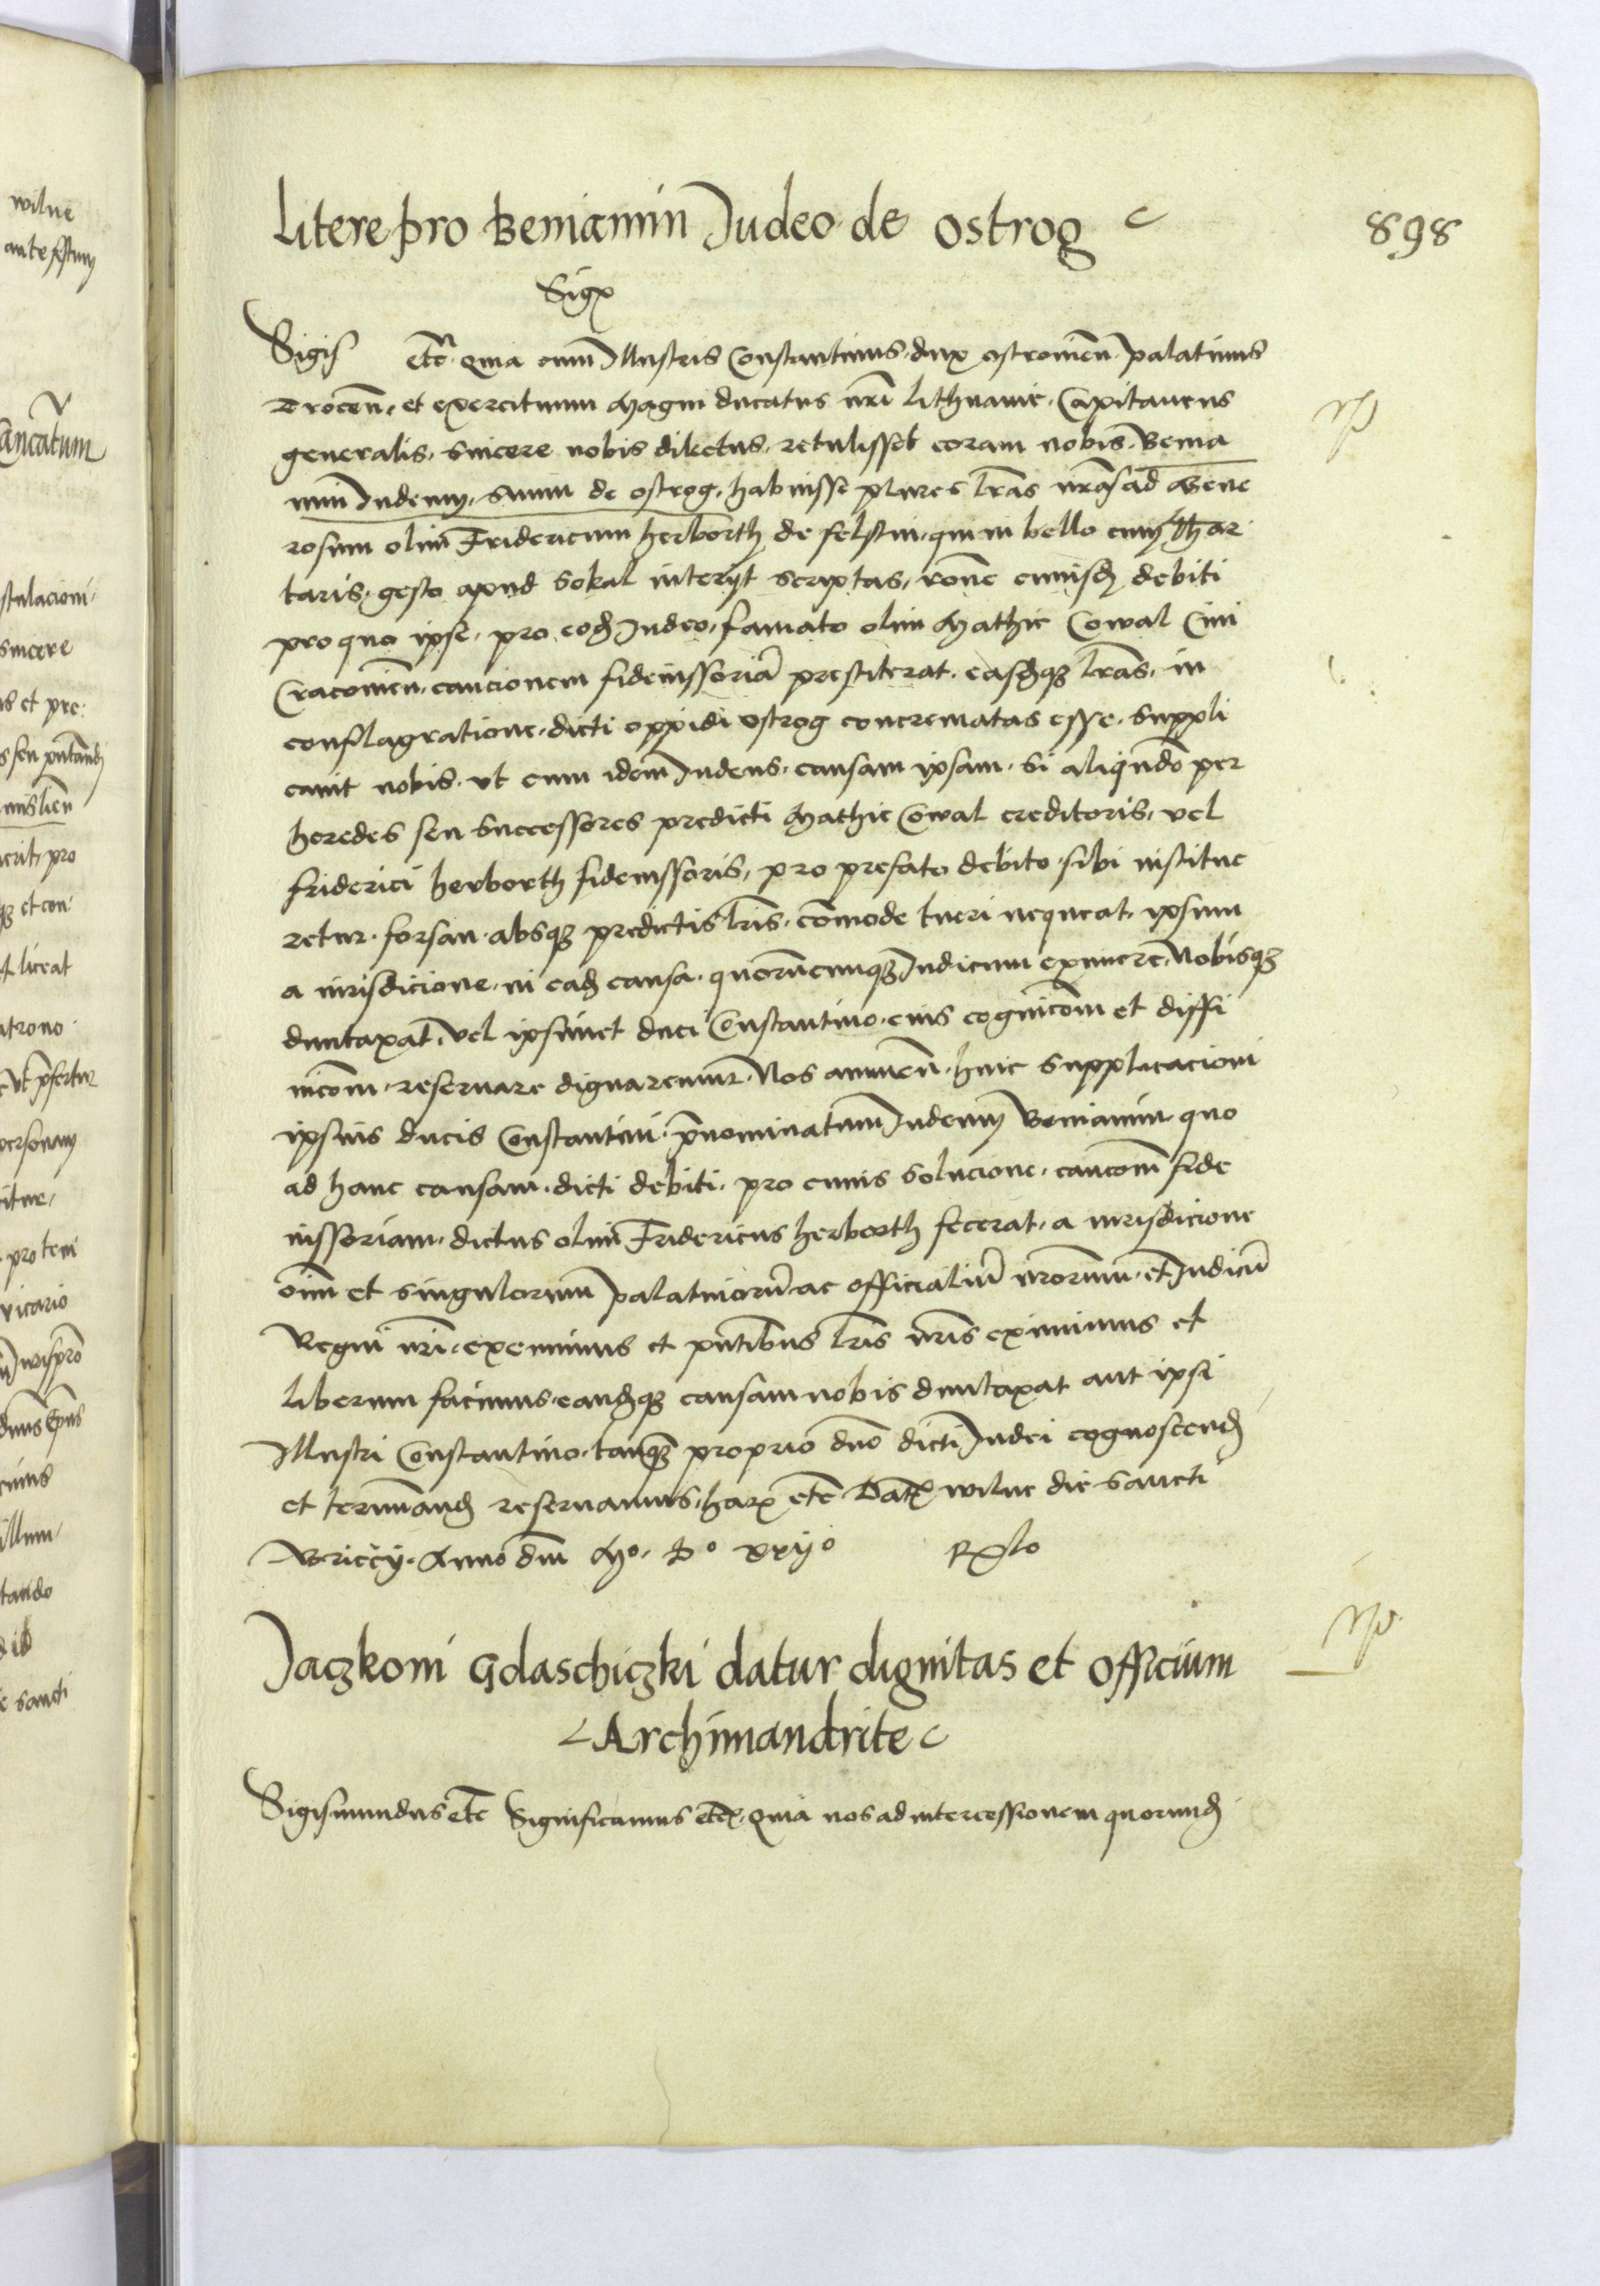 Litere pro Beniamin Judeo de Ostrog
898
Sigis etc. Quia cum Illustris Constantinus dux ostrouien palatinus
Trocen. et exercituum Magni ducatus nri Lithuanie Capitaneus
generalis, sincere nobis dilectus, retulisset coram nobis, Benia
min Iudeum, suum de ostrog, habuisse plures lras nras ad Gene
rosum olim Fridericum herborth de felstin, qui in bello cum Thar
taris, gesto apud Sokal interijt scriptas, rone cuiusd debiti
pro quo ipse, pro eod Iudeo, famato olim Mathie Cowal Ciui
Cracouien. caucionem fideiussoria prestiterat. easdq lras, in
conflagratione, dicti oppidi ostrog concrematas esse. Suppli
cauit nobis. ut cum idem Iudeus, causam ipsam, si aliqndo per
heredes seu successores predicti Mathie Cowal creditoris, vel
friderici herborth fideiussoris, pro prefato debito, sibi institue
retur, forsan, absq predictis lris, comode tueri nequeat, ipsum
a iurisdicione, in ead causa, quorucunq Iudicum eximere, Nobisq
duntaxat, vel ipsimet duci Constantino, eius cognicom et diffi
nicom, reseruare dignaremur. Nos annuen. huic supplicacioni
ipsius ducis Constantini, pnominatum Iudeum Beniamin quo
ad hanc causam, dicti debiti, pro cuius solucione, caucom fide
iussoriam, dictus olim Fridericus herborth fecerat, a iurisdicione
oim et singulorum palatinoru ac officialiu nrorum, et Iudicu
Regni nri, exemimus et pntibus lris nris eximimus et
liberum facimus, eandq causam nobis duntaxat aut ipsi
Illustri Constantino, tanq proprio dno dicti Iudei cognoscend
et terminand reseruamus, har etc. Dat wilne die Sancti
Briccij. Anno dni Mo. Do xxijo
Jaczkoni Gdaschiczki datur dignitas et officium
Archimandrite
Sigismundus etc Significamus etc. Quia nos ad intercessionem quorund